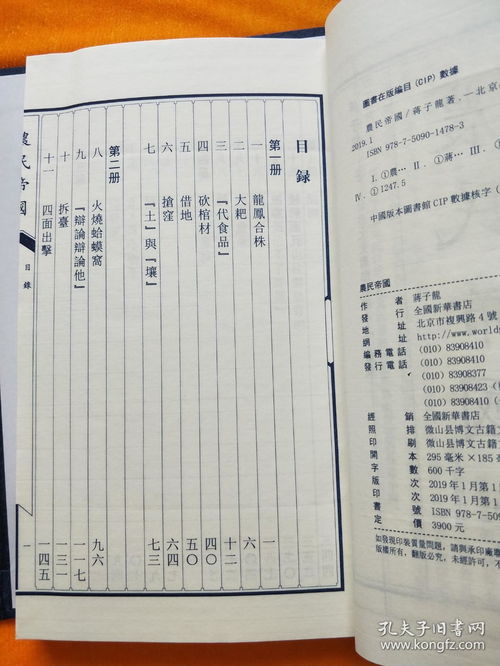 目録
第一册
一 龍鳳合株 一
二 大耙
三 『代食品』
四 砍棺材 四〇
五 借地 五〇
六 搶窪 六四
七 『土』與『壤』 七三
第二册
八 火燒蛤蟆窩 九六
九 『辯論辯論他』 一一七
十 拆臺 一三一
十一 四面出擊 一四五
農民帝國
目録
一
圖書在版編目(CIP)數據
農民帝國/蔣子龍著.—北京
2019.1
ISBN 978-7-5090-1478-3
Ⅰ.①農… Ⅱ.①蔣… Ⅲ.
Ⅳ.①I247.5
中國版本圖書館CIP數據核字
農民帝國
作者 蔣子龍
發行 全國新華書店
地址 北京市復興路4號
網址 http://www.worlds
編務電話 (010) 83908410
發行電話 (010) 83908410
(010) 83908377
(010) 83908423
(010) 83908410
經銷 全國新華書店
照排 微山县博文古籍
印刷 微山县博文古籍文
開本 295毫米×185毫
字數 600千字
版次 2019年1月第1
印次 2019年1月第1
書號 ISBN 978-7-509
定價 3900元
如發現印裝質量問題，請與承印廠
版權所有，翻版必究，未經許可，不
孔夫子旧书网
www.kongfz.com